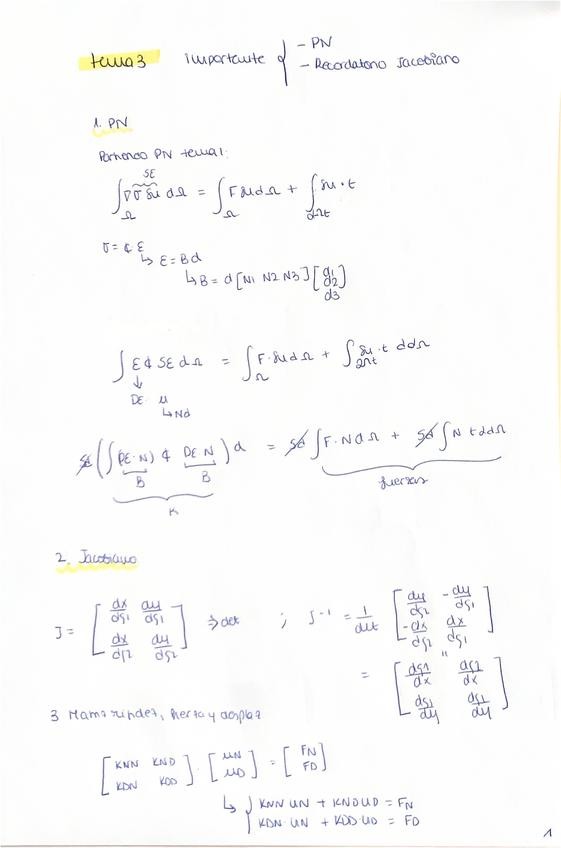 tema 3 importante { - PN
- Recordatorio Jacobiano
1. PN
Partiendo PN tema 1:
δε
∫Ω ∇σ δu dΩ = ∫Ω F δu dΩ + ∫∂Ωt δu · t
σ = ¢ ε
↳ ε = B d
↳ B = d [N1 N2 N3] [d1 d2 d3]
∫ ε ¢ δε dΩ = ∫Ω F · δu dΩ + ∫∂Ωt δu · t d∂Ω
↓
DE · u
↳ Nd
δd (∫ (DE · N) ¢ DE N) d = δd ∫ F · N dΩ + δd ∫ N t d∂Ω
B B fuerzas
K
2. Jacobiano
J = [dx/dξ1 dy/dξ1; dx/dξ2 dy/dξ2] ⇒ det ; J⁻¹ = 1/det [dy/dξ2 -dy/dξ1; -dx/dξ2 dx/dξ1]
"
= [dξ1/dx dξ2/dx; dξ1/dy dξ1/dy]
3
[KNN KND; KDN KDD] · [uN; uD] = [FN; FD]
↳ { KNN uN + KND uD = FN
KDN · uN + KDD · uD = FD
1